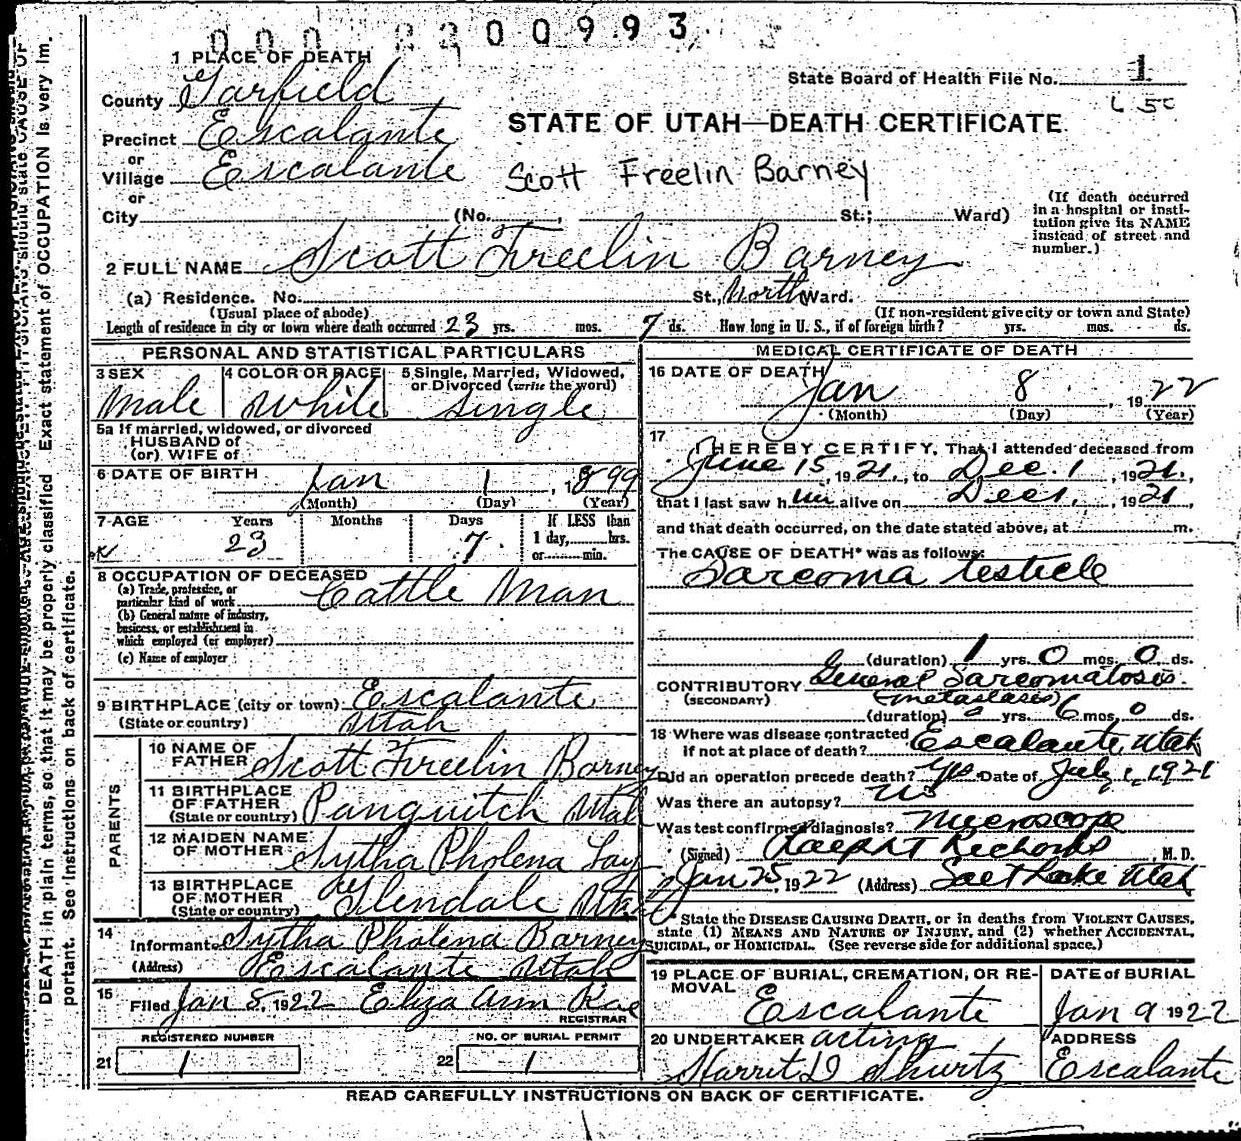 000 2200993
1 PLACE OF DEATH
State Board of Health File No. 1
County Garfield
STATE OF UTAH—DEATH CERTIFICATE
Precinct Escalante
or
Village Escalante
Scott Freelin Barney
or
City (No. , St.; Ward)
(If death occurred in a hospital or insti-
tution give its NAME
instead of street and
number.)
2 FULL NAME Scott Freelin Barney
(a) Residence. No. St., North Ward.
(Usual place of abode) (If non-resident give city or town and State)
Length of residence in city or town where death occurred 23 yrs. mos. 7 ds. How long in U. S., if of foreign birth? yrs. mos. ds.
PERSONAL AND STATISTICAL PARTICULARS
3 SEX 4 COLOR OR RACE 5 Single, Married, Widowed,
or Divorced (write the word)
Male White Single
5a If married, widowed, or divorced
HUSBAND of
(or) WIFE of
6 DATE OF BIRTH Jan 1, 1899
(Month) (Day) (Year)
7 AGE Years Months Days If LESS than
1 day, hrs.
or min.
23 7
8 OCCUPATION OF DECEASED
(a) Trade, profession, or
particular kind of work Cattle Man
(b) General nature of industry,
business, or establishment in
which employed (or employer)
(c) Name of employer
9 BIRTHPLACE (city or town) Escalante
(State or country) Utah
PARENTS
10 NAME OF
FATHER Scott Freelin Barney
11 BIRTHPLACE
OF FATHER
(State or country) Panguitch Utah
12 MAIDEN NAME
OF MOTHER Sytha Pholena Lay
13 BIRTHPLACE
OF MOTHER
(State or country) Glendale Utah
14
Informant Sytha Pholena Barney
(Address) Escalante Utah
15
Filed Jan 8, 1922 Eliza Ann Rae
REGISTRAR
REGISTERED NUMBER NO. OF BURIAL PERMIT
21 1 22 1
MEDICAL CERTIFICATE OF DEATH
16 DATE OF DEATH
Jan 8, 1922
(Month) (Day) (Year)
17
I HEREBY CERTIFY, That I attended deceased from
June 15, 1921, to Dec. 1, 1921,
that I last saw him alive on Dec 1, 1921
and that death occurred, on the date stated above, at m.
The CAUSE OF DEATH* was as follows:
Sarcoma testicle
(duration) 1 yrs. 0 mos. 0 ds.
CONTRIBUTORY General Sarcomatosis.
(SECONDARY) (metastasis)
(duration) 0 yrs. 6 mos. 0 ds.
18 Where was disease contracted
if not at place of death? Escalante, Utah
Did an operation precede death? yes Date of July 1, 1921
Was there an autopsy? no
Was test confirmed diagnosis? Microscope
(Signed) Ralph T Richards M. D.
Jan 25, 1922 (Address) Salt Lake Utah
* State the DISEASE CAUSING DEATH, or in deaths from VIOLENT CAUSES,
state (1) MEANS AND NATURE OF INJURY, and (2) whether ACCIDENTAL,
SUICIDAL, or HOMICIDAL. (See reverse side for additional space.)
19 PLACE OF BURIAL, CREMATION, OR RE-
MOVAL
DATE of BURIAL
Escalante Jan 9 1922
20 UNDERTAKER acting
ADDRESS
Shurtz Escalante
READ CAREFULLY INSTRUCTIONS ON BACK OF CERTIFICATE.
should state CAUSE OF
DEATH in plain terms, so that it may be properly classified Exact statement of OCCUPATION is very im-
portant. See instructions on back of certificate.